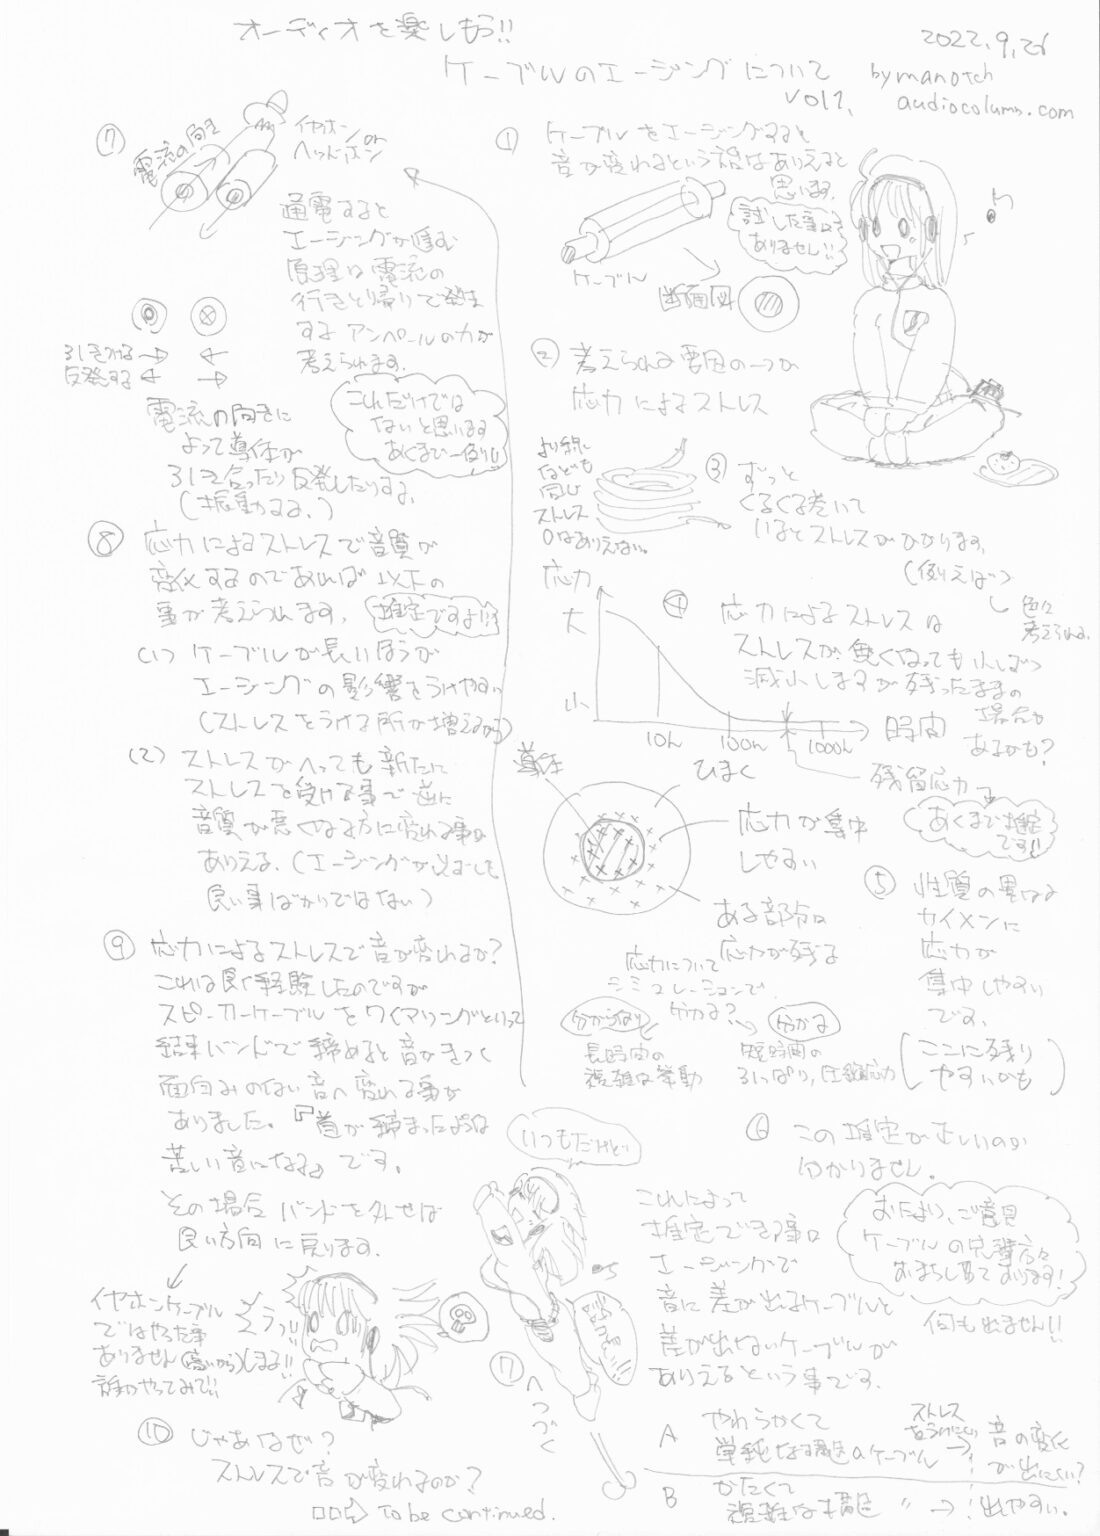 オーディオを楽しもう!!
ケーブルのエージングについて
vol1.
2022.9.26
by manotch
audiocolumn.com
① ケーブルをエージングすると
音が変わるという話はありえると
思います。
試した事は
ありません!!
ケーブル
断面図
② 考えられる要因の一つが
応力によるストレス
より線
なども
同じ
ストレス
0はありえない。
③ ずっと
くるくる巻いて
いるとストレスがかかります。
(例えば)
色々
考えられる。
応力
大
小
10h
100h
1000h
時間
④ 応力によるストレスは
ストレスが無くなっても少しずつ
減少しますが残ったままの
場合も
あるかも?
残留応力
あくまで推定
です!!
導体
ひまく
応力が集中
しやすい
ある部分は
応力が残る
⑤ 性質の異なる
カイメンに
応力が
集中しやすい
です。
(ここに残り
やすいかも)
応力について
シミュレーションで
分かる?
分からない
長時間の
複雑な挙動
分かる
短時間の
引っぱり,圧縮応力
⑥ この推定が正しいのか
分かりません。
おたより、ご意見
ケーブルの先輩方々
おまちしております!
何も出ません!!
これによって
推定できる事は
エージングで
音に差が出るケーブルと
差が出ないケーブルが
ありえるという事です。
A やわらかくて
単純な構造のケーブル
ストレス
をうけにくい
→ 音の変化
が出にくい?
B かたくて
複雑な構造 〃 → 出やすい。
いつもだけど
⑦へつづく
⑦ 電流の向き
イヤホン
or
ヘッドホン
通電すると
エージングが進む
原理は電流の
行きと帰りで発生
するアンペールの力が
考えられます。
引きつける → ←
反発する ← →
これだけでは
ないと思います
あくまで一例!!
電流の向きに
よって導体が
引き合ったり反発したりする。
(振動する。)
⑧ 応力によるストレスで音質が
変化するのであれば以下の
事が考えられます。
推定ですよ!?
(1) ケーブルが長いほうが
エージングの影響をうけやすい
(ストレスをうける所が増えるから)
(2) ストレスがへっても新たに
ストレスを受ける事で逆に
音質が悪くなる方に変わる事も
ありえる。(エージングが必ずしも
良い事ばかりではない)
⑨ 応力によるストレスで音が変わるか?
これは良く経験したのですが
スピーカーケーブルをワイヤリングといって
結束バンドで締めると音がきつく
面白みのない音へ変わる事が
ありました。『首が締まったような
苦しい音になる』です。
その場合バンドを外せば
良い方向に戻ります。
イヤホンケーブル
ではやった事
ありません(高いから)
誰かやってみて!!
⑩ じゃあなぜ?
ストレスで音が変わるのか?
to be continued.